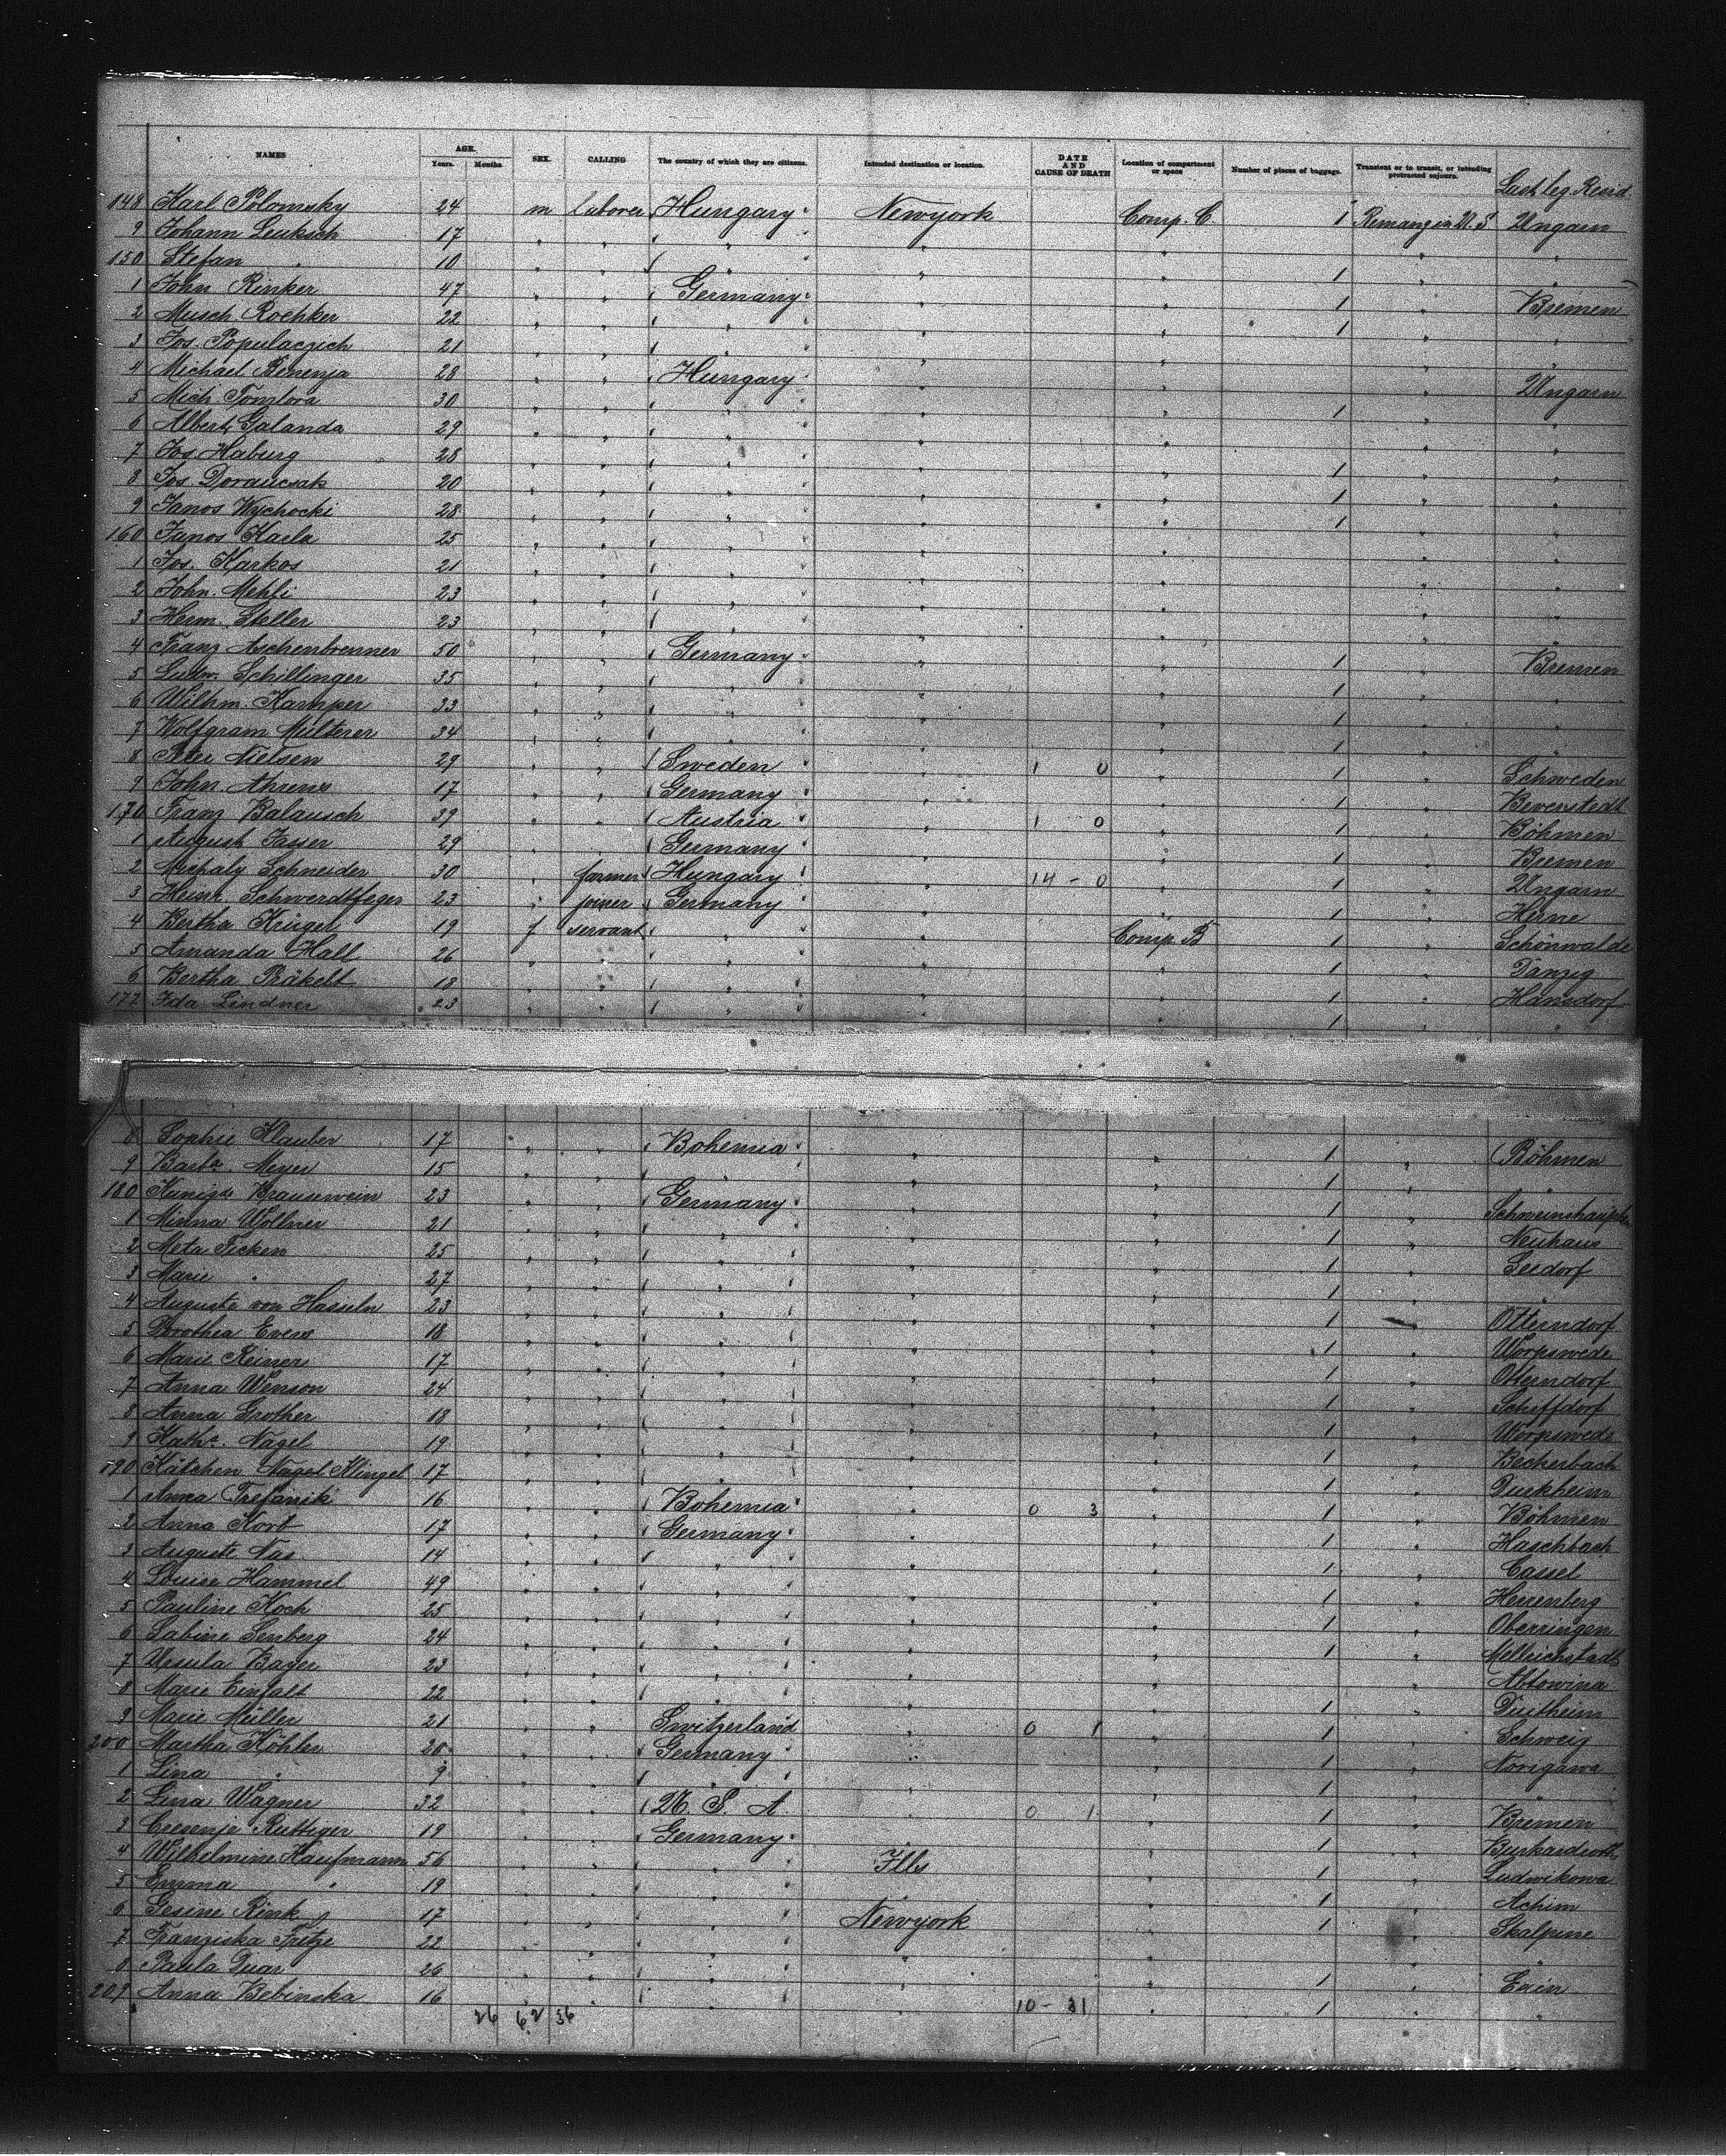 NAMES AGE. Years. Months. SEX. CALLING The country of which they are citizens. Intended destination or location. DATE AND CAUSE OF DEATH Location of compartment or space Number of pieces of baggage. Transient or in transit, or intending protracted sojourn. Last leg. Resid.
148 Karl Polomsky 24 m laborer Hungary Newyork Comp. C. 1 Remang in U.S Ungarn
9 Johann Leuksch 17 " " " " " " "
150 Stefan " 10 " " " " " 1 " "
1 John Rinker 47 " " Germany " " 1 " Bremen
2 Musch Rochker 22 " " " " " 1 " "
3 Jos. Populaczich 21 " " " " " " "
4 Michael Benenja 28 " " Hungary " " " Ungarn
5 Mich. Tomlora 30 " " " " " 1 " "
6 Albert Galanda 29 " " " " " " "
7 Jos. Haburg 28 " " " " " 1 " "
8 Jos. Dorancsak 20 " " " " " 1 " "
9 Janos Wychocki 28 " " " " " 1 " "
160 Janos Karla 25 " " " " " " "
1 Jos. Karkos 21 " " " " " " "
2 John. Mehli 23 " " " " " " "
3 Herm. Steller 23 " " " " " " "
4 Franz Aschenbrenner 50 " " Germany " " 1 " Bremen
5 Ludw. Schillinger 35 " " " " " 1 " "
6 Wilhm. Kamper 33 " " " " " 1 " "
7 Wolfgram Meilterer 34 " " " " " 1 " "
8 Peter Nielsen 29 " " Sweden " 1 0 " 1 " Schweden
9 John Ahrens 17 " " Germany " " 1 " Beverstedt
170 Franz Balausch 39 " " Austria " 1 0 " 1 " Böhmen
1 August Jasser 29 " " Germany " " 1 " Bremen
2 Michaly Schneider 30 " farmer Hungary " 14 - 0 " 1 " Ungarn
3 Heinr. Schwerdtfeger 23 " joiner Germany " " 1 " Herne
4 Bertha Krügel 19 f servant " " Comp. B 1 " Schönwalde
5 Amanda Hall 26 " " " " " 1 " Danzig
6 Bertha Präkelt 18 " " " " " 1 " Hansdorf
177 Ida Lindner 23 " " " " " 1 " "
8 Sophie Klauber 17 " " Bohemia " " 1 " Böhmen
9 Barba. Meyer 15 " " " " " 1 " "
180 Kunigde Brausewein 23 " " Germany " " 1 "
1 Minna Wollner 21 " " " " " 1 " Neuhaus
2 Meta Ficken 25 " " " " " 1 " Seedorf
3 Marie " 27 " " " " " 1 " "
4 Auguste von Hasseln 23 " " " " " 1 " Otterndorf
5 Dorothea Evers 18 " " " " " 1 " Worpswede
6 Marie Reiners 17 " " " " " 1 " Otterndorf
7 Anna Wenson 24 " " " " " 1 " Schiffdorf
8 Anna Grother 18 " " " " " 1 " Worpswede
9 Katha. Nagel 19 " " " " " 1 " Becherbach
190 Kätchen Nagel Klingel 17 " " " " " 1 " Durkheim
1 Anna Trefanik 16 " " Bohemia " 0 3 " 1 " Böhmen
2 Anna Korb 17 " " Germany " " 1 " Haschbach
3 Auguste Nas 14 " " " " " 1 " Cassel
4 Louise Hammel 49 " " " " " 1 " Herrenberg
5 Pauline Koch 25 " " " " " 1 " Oberringen
6 Sabine Senberg 24 " " " " " 1 " Mellrichstadt
7 Ursula Bayer 23 " " " " " " Abtowina
8 Marie Einfalt 22 " " " " " 1 " Duitheim
9 Marie Müller 21 " " Switzerland " 0 1 " 1 " Schweiz
200 Martha Köhler 20 " " Germany " " 1 " Norigawa
1 Lina " 9 " " " " " 1 " "
2 Lina Wagner 32 " " U. S. A " 0 1 " 1 " Bremen
3 Cresenje Ruttiger 19 " " Germany " " 1 " Burkardroth
4 Wilhelmine Kaufmann 56 " " " Ills " 1 " Ludwikowa
5 Emma " 19 " " " " " 1 " Achim
6 Gesine Rink 17 " " " Newyork " 1 " Skalpine
7 Franziska Fritze 22 " " " " " " "
8 Paula Duar 26 " " " " " 1 " Exin
209 Anna Bebinska 16 " " " " 10 - 31 " 1 " "
26 62 36